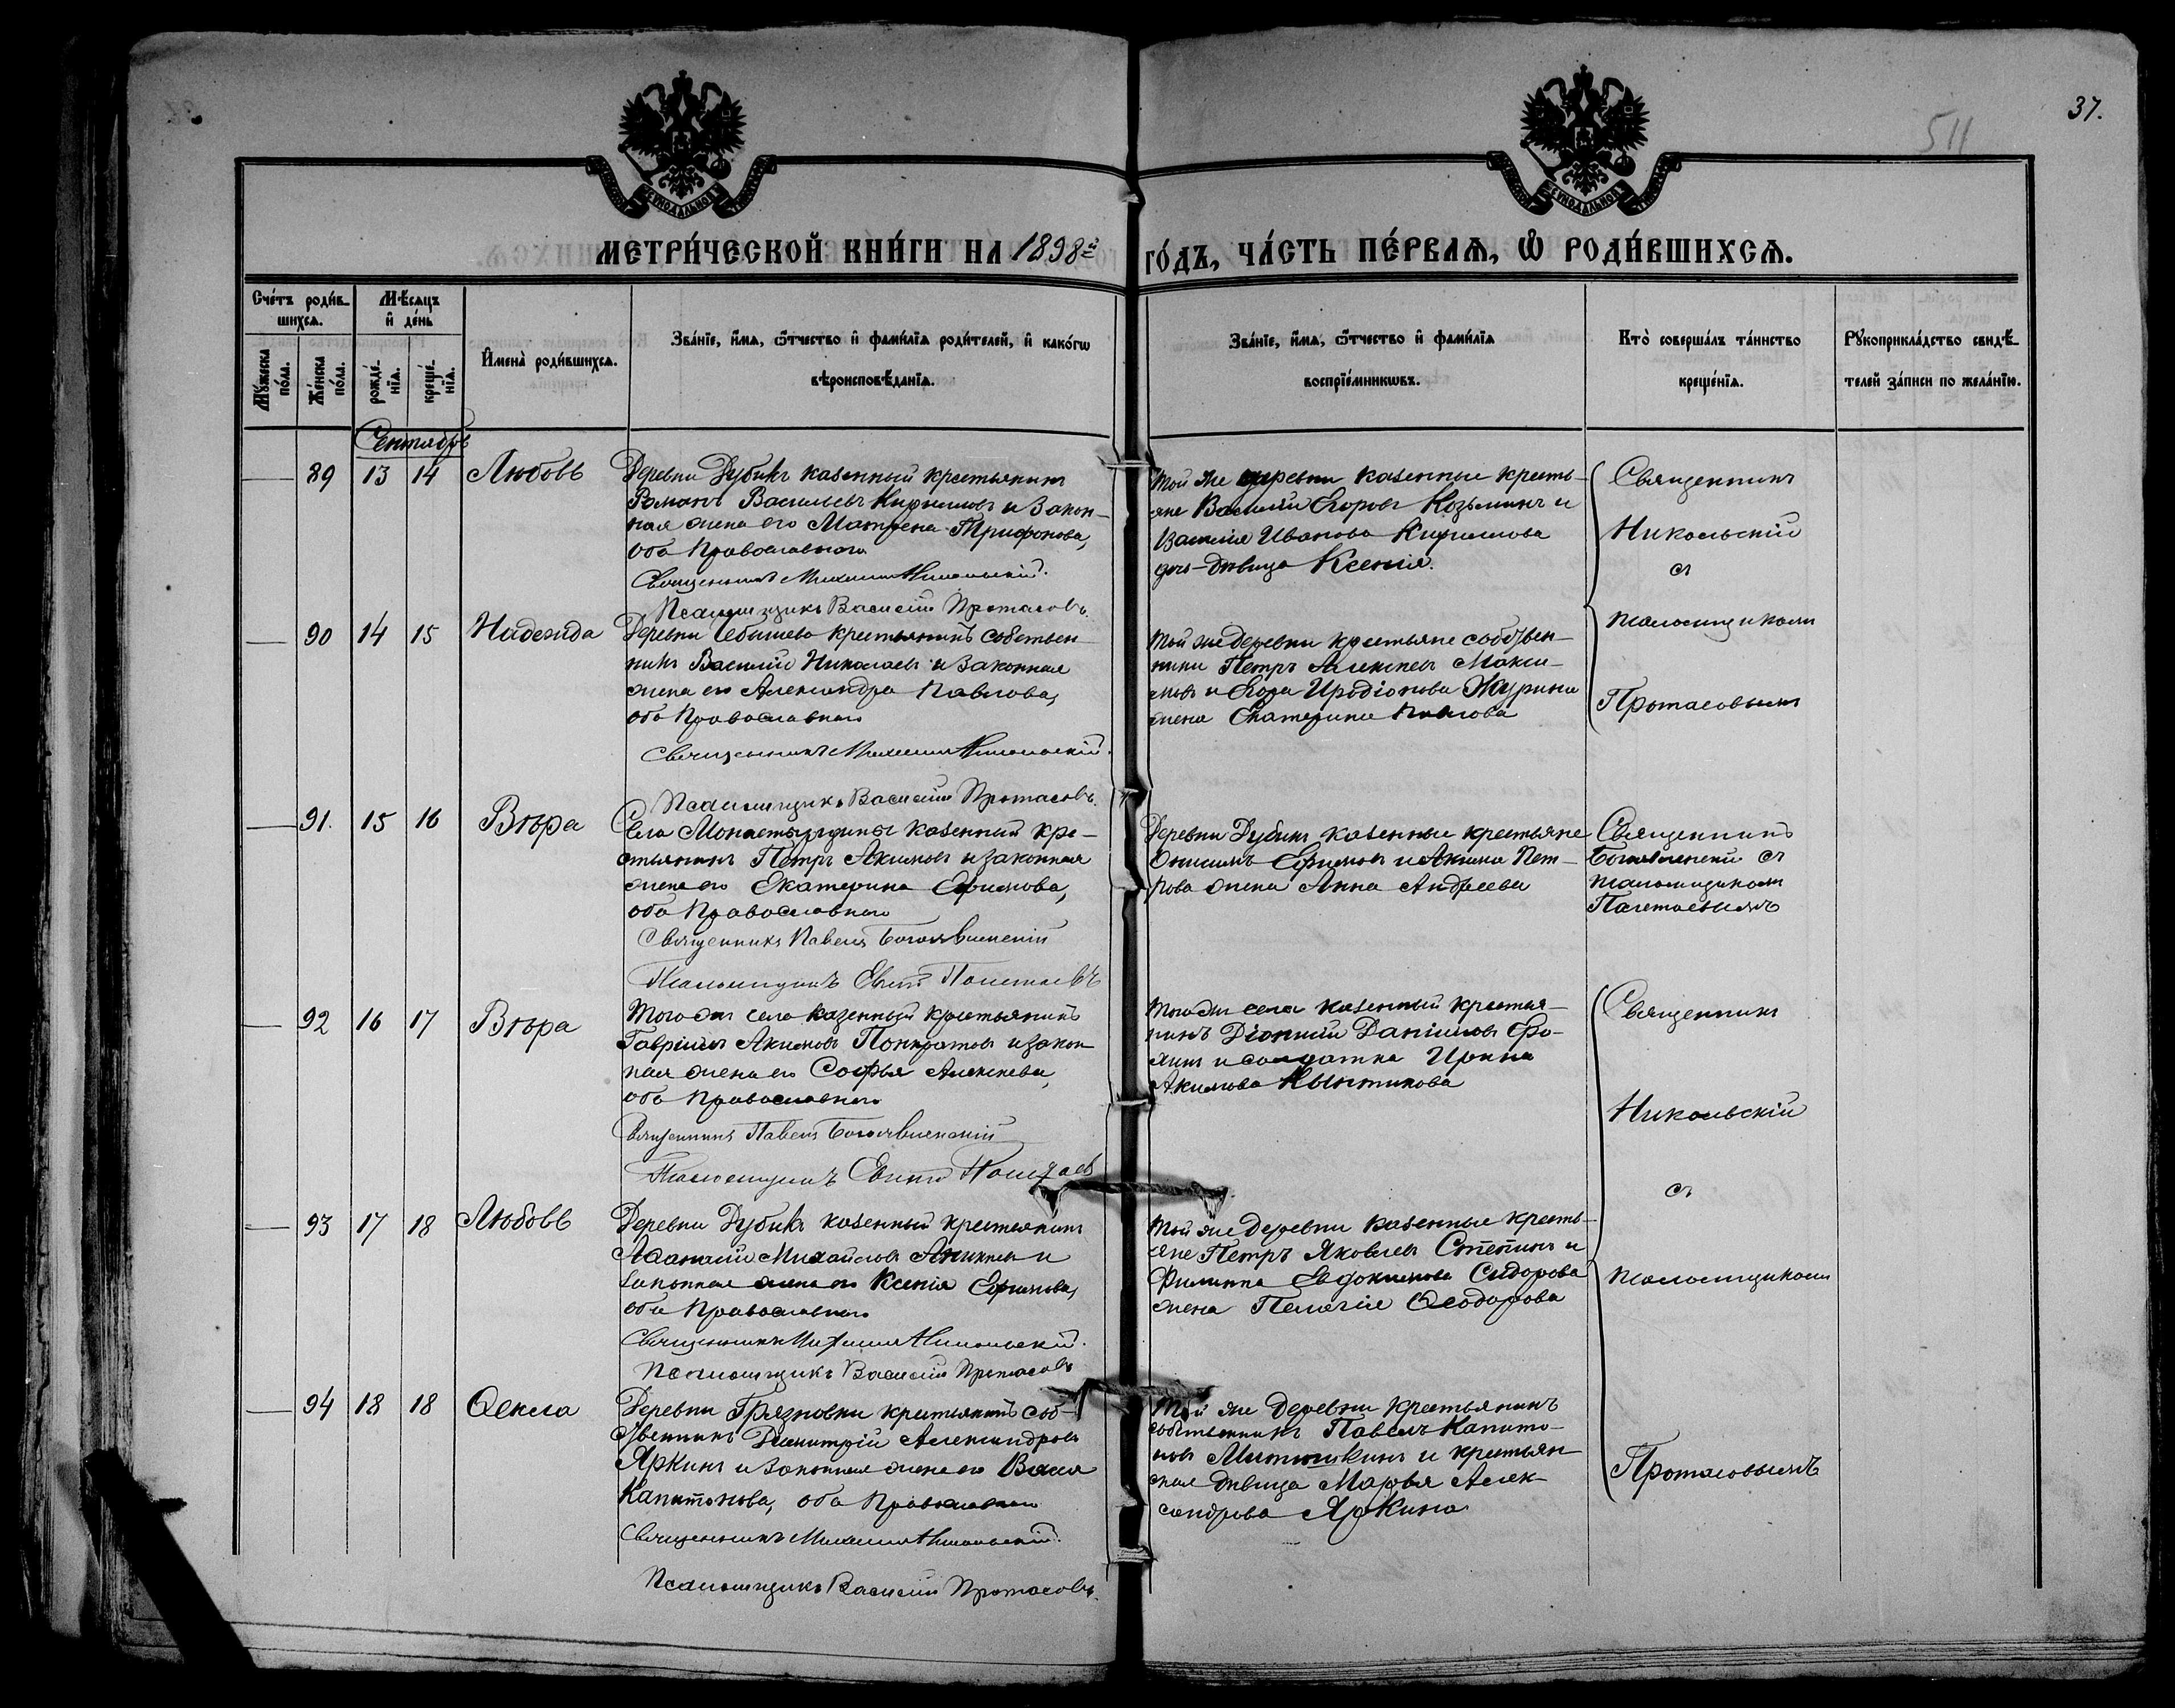 37.
511
МЕТРИ́ЧЕСКОЙ КНИ́ГИ НА 1898й ГО́ДЪ, ЧА́СТЬ ПЕ́РВАѦ, Ѡ҆ РОДИ́ВШИХСѦ.
Сче́тъ роди́в-
шихсѧ.
Мꙋжеска по́ла.
Же́нска по́ла.
Мѣ́сѧцъ и҆ де́нь
рожде́-
нїѧ.
креще́-
нїѧ.
И҆мена̀ роди́вшихсѧ.
Зва́нїе, и҆́мѧ, ѻ҆́тчество и҆ фами́лїѧ роди́телей, и҆ како́гѡ
вѣроисповѣ́данїѧ.
Зва́нїе, и҆́мѧ, ѻ҆́тчество и҆ фами́лїѧ
воспрїе́мникѡвъ.
Кто̀ соверша́лъ та́инство
креще́нїѧ.
Рꙋкоприкла́дство свидѣ́-
телей за́писи по жела́нїю.
Сентябрь
89 13 14 Любовь
Деревни Дубикъ казенный крестьянинъ
Романъ Васильевъ Кирилловъ и закон-
ная жена его Матрена Трифонова,
оба Православнаго
Священникъ Михаилъ Никольскій.
Псаломщикъ Василій Протасовъ.
Той же деревни казенные кресть-
яне Василий Егоровъ Козьминъ и
Василія Иванова Кириллова
дочь-дѣвица Ксенія.
Священникъ
Никольскій
съ
псаломщикомъ
Протасовымъ
90 14 15 Надежда
Деревни Чебышево крестьянинъ собствен-
никъ Василій Николаевъ и законная
жена его Александра Павлова,
оба Православнаго
Священникъ Михаилъ Никольскій.
Псаломщикъ Василій Протасовъ.
Той же деревни крестьяне собствен-
ники Петръ Алексѣевъ Макси-
мовъ и Егора Иродіонова Журина
жена Екатерина Павлова
91. 15 16 Вѣра
Села Монастырщины казенный кре-
стьянинъ Петръ Акимовъ и законная
жена его Екатерина Ефимова,
оба Православнаго
Священникъ Павелъ Богоявленскій
Псаломщикъ
Деревни Дубикъ казенные крестьяне
Онисимъ Ефимовъ и Акима Пет-
рова жена Анна Андреева
Священникъ
Богоявленскій съ
псаломщикомъ
92 16 17 Вѣра
Того же села казенный крестьянинъ
Гавріилъ Акимовъ Понкратовъ и закон
ная жена его Софья Алексѣева,
оба Православнаго
Священникъ Павелъ Богоявленскій
Псаломщикъ
Того же села казенный крестья-
нинъ Діонисій Даніиловъ Фо-
минъ и солдатка Ирина
Акимова
Священникъ
Никольскій
съ
псаломщикомъ
Протасовымъ
93 17 18 Любовь
Деревни Дубикъ казенный крестьянинъ
Аѳанасій Михайловъ Аникѣевъ и
законная жена его Ксенія Ефимова,
оба Православнаго
Священникъ Михаилъ Никольскій.
Псаломщикъ Василій Протасовъ
Той же деревни казенные кресть-
яне Петръ Яковлевъ Степинъ и
Филиппа Евдокимова Сидорова
жена Пелагія Ѳеодорова
94 18 18 Ѳекла
Деревни Грязновки крестьянинъ соб-
ственникъ Димитрій Александровъ
Яркинъ и законная жена его Васса
Капитонова, оба Православнаго
Священникъ Михаилъ Никольскій.
Псаломщикъ Василій Протасовъ.
Той же деревни крестьянинъ
собственникъ Павелъ Капито-
новъ Митюшкинъ и крестьян
ская дѣвица Марья Алек-
сандрова Яркина